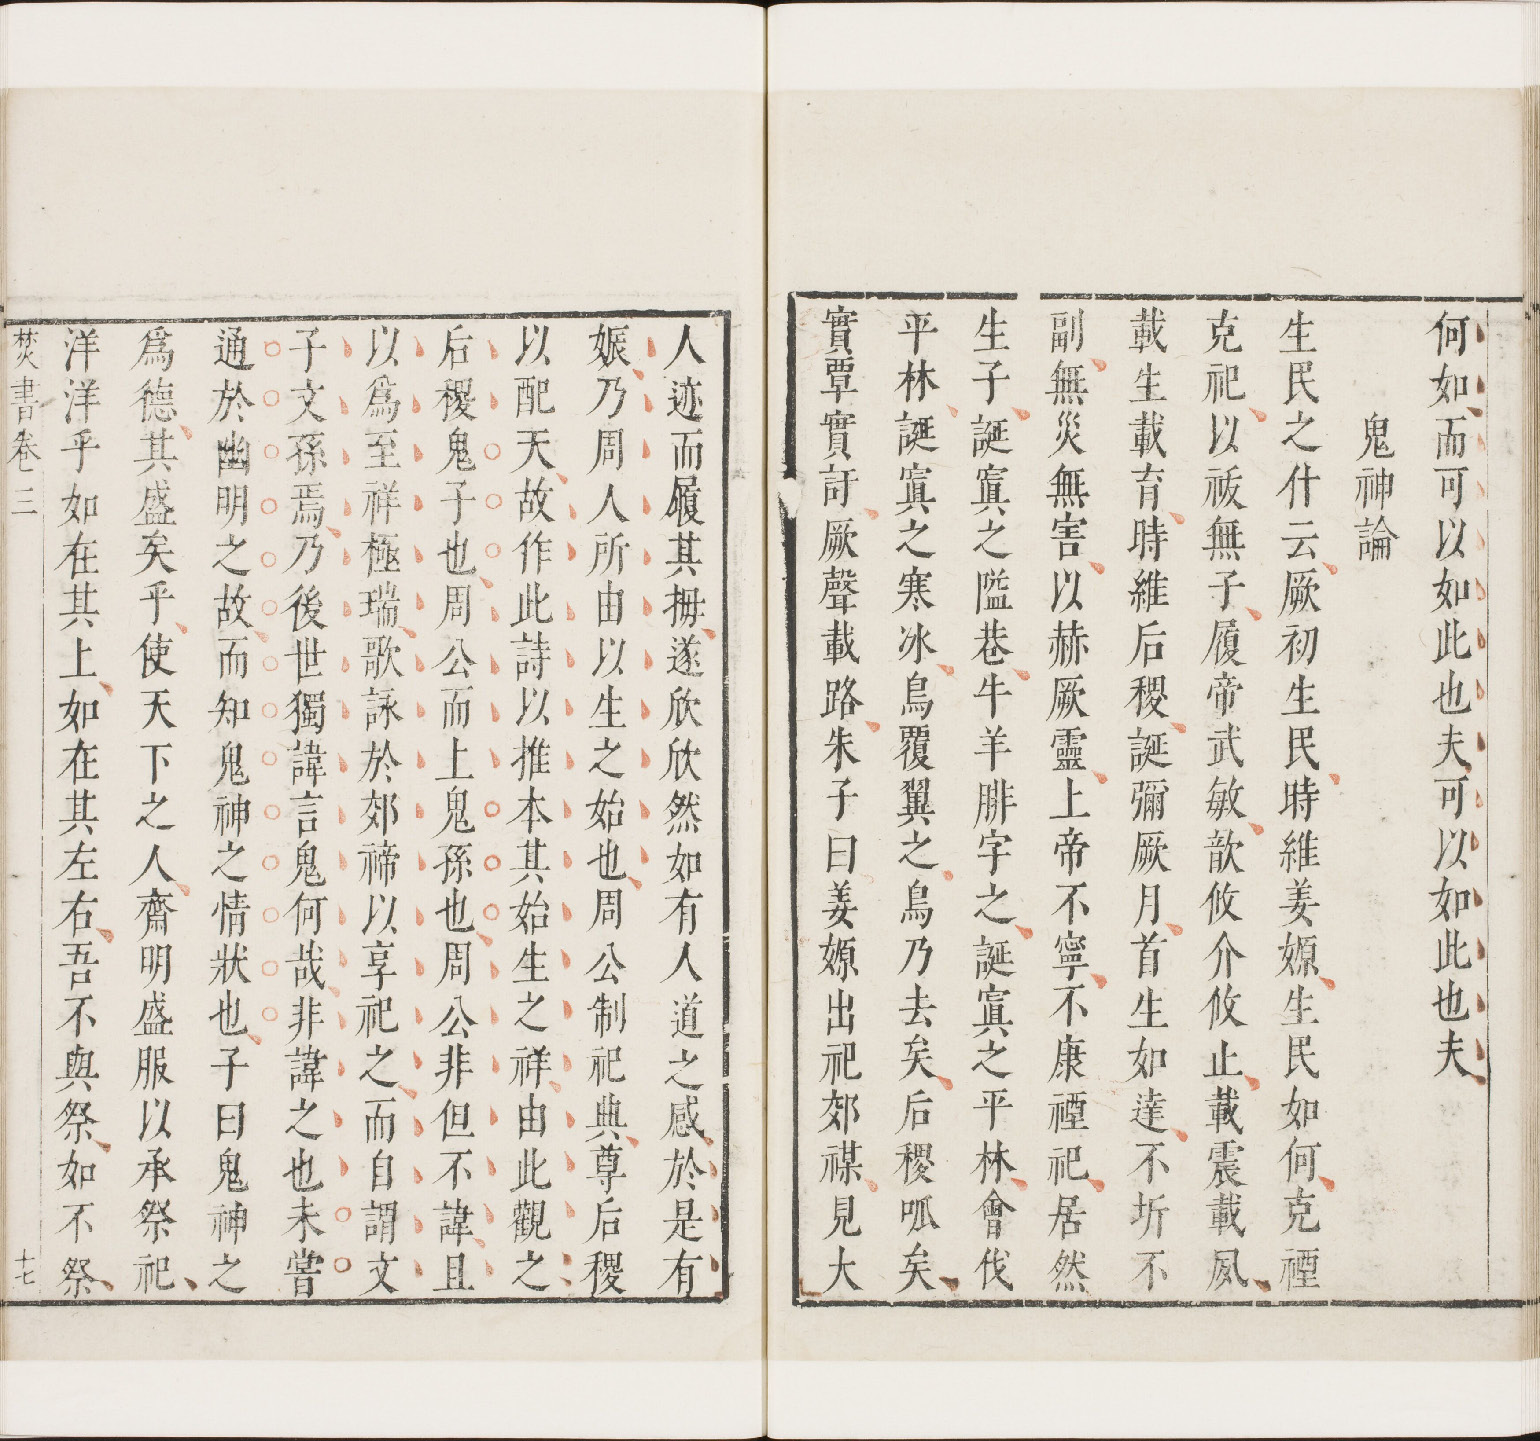 何如而可以如此也夫可以如此也夫
鬼神論
生民之什云厥初生民時維姜嫄生民如何克禋
克祀以祓無子履帝武敏歆攸介攸止載震載夙
載生載育時維后稷誕彌厥月首生如達不坼不
副無災無害以赫厥靈上帝不寧不康禋祀居然
生子誕寘之隘巷牛羊腓字之誕寘之平林會伐
平林誕寘之寒冰鳥覆翼之鳥乃去矣后稷呱矣
實覃實訏厥聲載路朱子曰姜嫄出祀郊禖見大
人迹而履其拇遂欣欣然如有人道之感於是有
娠乃周人所由以生之始也周公制祀典尊后稷
以配天故作此詩以推本其始生之祥由此觀之
后稷鬼子也周公而上鬼孫也周公非但不諱且
以爲至祥極瑞歌詠於郊禘以享祀之而自謂文
子文孫焉乃後世獨諱言鬼何哉非諱之也未嘗
通於幽明之故而知鬼神之情狀也子曰鬼神之
爲德其盛矣乎使天下之人齋明盛服以承祭祀
洋洋乎如在其上如在其左右吾不與祭如不祭
焚書卷三
十七